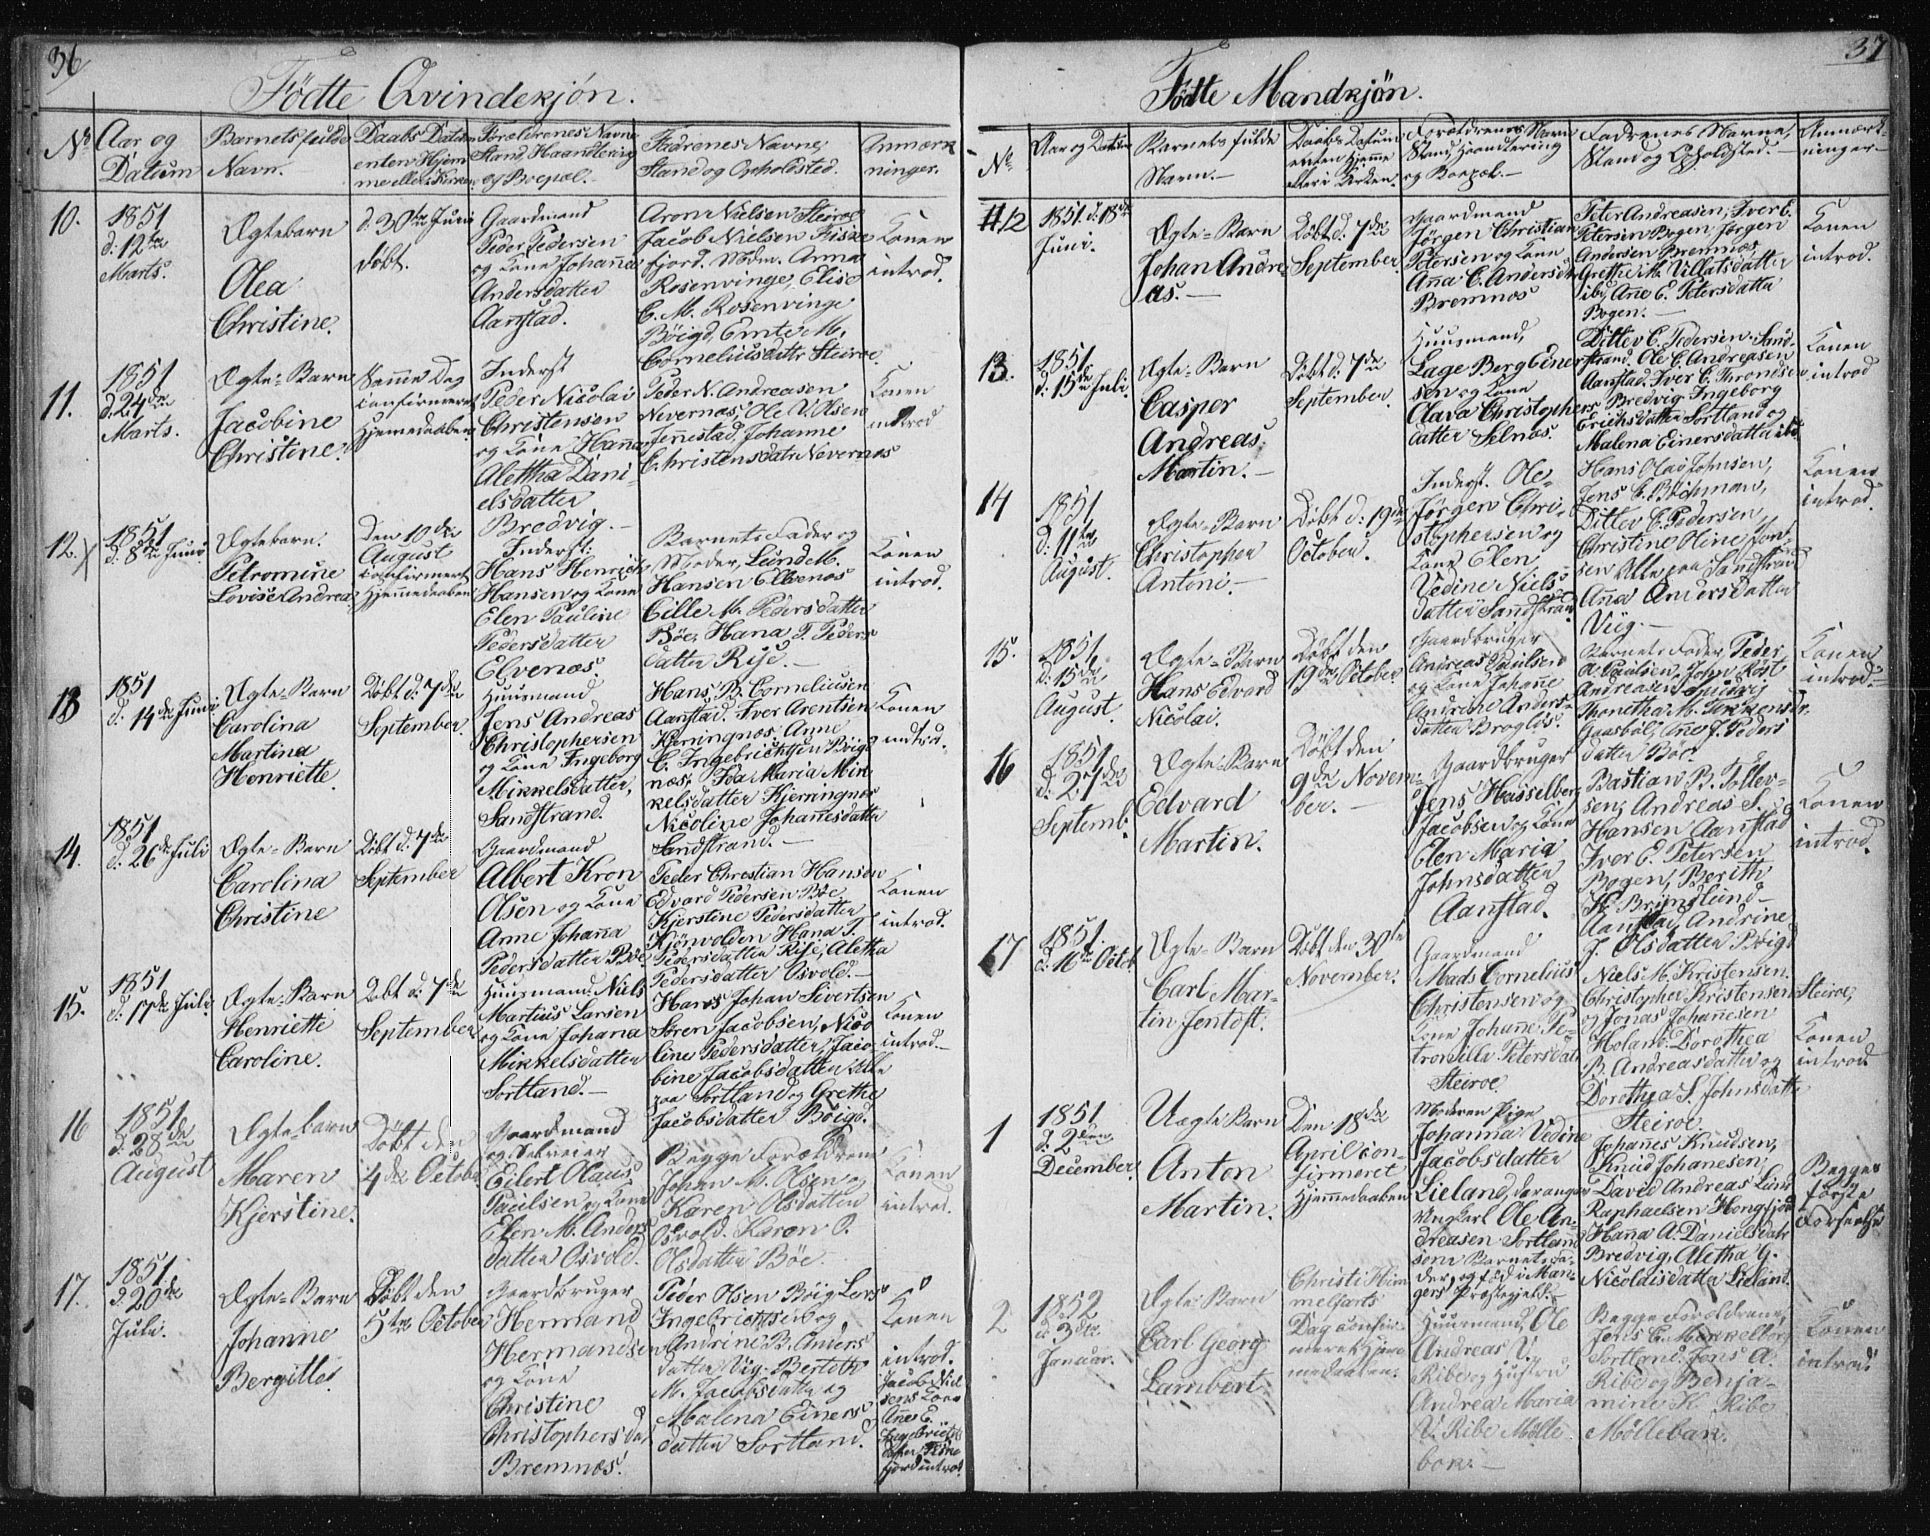 36
Födte Qvindekjön.
No
Aar og
Datum
Barnets fulde
Navn.
Daabs Datum
enten Hjem-
me eller i Kirken
Forældrenes Navne
Stand Haandtering
og Boepæl.
Fadrenes Navne,
Stand og Opholdsted.
Anmærk
ninger.
10.
1851
d: 12te
Marts.
Ægtebarn
Olea
Christine.
d. 30te Juni
döbt.
Gaardmand
Peder Pedersen
og Kone Johanna
Andersdatter
Aanstad.
Aron Nielsen Steiroe
Jacob Nielsen Fiske
fjord. Mdm. Anna
Rosenvinge, Elise
C. M. Rosenvinge
Böigd, Emte M.
Corneliusdatr Steiroe.
Konen
introd.
11.
1851
d. 24de
Marts.
Ægte-Barn
Jacobine
Christine.
Samme Dag
confirmeret
Hjemedaaben
Inderst
Peder Nicolai
Christensen
og Kone Hanna
Alettha Dani-
elsdatter
Bredvig.-
Peder N. Andreasen
Nevernæs, Ole V. Olsen
Jennestad, Johanne
Christensdatr Nevernæs
Konen
introd
12.
1851
d. 8de Juni
Ægtebarn.
Petromine
Lovise Andrea
Den 10de
August
confirmeret
Hjemmedaaben
Inderst:
Hans Henrich
Hansen og Kone
Elen Pauline
Pedersdatter
Elvenæs.
Barnets Fader og
Moder, Lund M.
Hansen Elvenæs
Cille M. Pedersdatter
Böe, Hana T. Peders
datter Rise.-
Konen
introd.
13
1851
d: 14de Juni
Ægte-Barn
Carolina
Martina
Henriette.
Döbt d. 7de
September.
Huusmand
Jens Andreas
Christophersen
og Kone Ingeborg
Mikkelsdatter,
Sandstrand.
Hans B. Corneliusen
Aanstad. Iver Arentsen
Kjerringnæs, Anne
C. Ingebrichtsen Böig
næs, Ida Maria Mik
kelsdatter Kjerringnæs
Nicoline Johannesdatter
Sandstrand.-
Konen
introd.
14.
1851
d. 26de Juli
Ægte-Barn
Carolina
Christine
Döbt d. 7de
September
Gaardmand
Albert Kron
Olsen og Kone
Anne Johanna
Pedersdatter Böe
Peder Christian Hansen
Edvard Pedersen Böe
Kjerstine Pedersdatter
Kjörvolden Hana T.
Pedersdatter Rise, Aletha
Pedersdatter Osvold.-
Konen
introd.
15.
1851
d: 17de Juli.
Ægte-Barn
Henriette
Caroline.
Döbt d. 7de
September
Huusmand Niels
Martius Larsen
og Kone Johana
Mikkelsdatter
Sortland.-
Hans Johan Sivertsen
Sören Jacobsen, Nico
line Pedersdatter, Jaco-
bine Jacobsdatter Alle
paa Sortland og Grethe
Jacobsdatter Böigd.
Konen
introd.-
16
1851
d. 28de
August
Ægtebarn
Maren
Kjerstine.
Döbt den
4de October
Gaardmand
og Selveier
Eilert Olaus
Paulsen og Kone
Elen M. Anders
datter Osvold.
Begge Forældrene
Johan M. Olsen og
Karen Olsdatter
Osvold. Karen O.
Olsdatter Böe.
Konen
introd.
17.
1851.
d. 20de
Juli.
Ægte-Barn
Johanne
Bergitte
Döbt den
5te October
Gaardbruger
Hermand
Hermandsen
og Kone
Christine
Christophersdat
Bremnæs.
Peder Olsen Böig Lars
Ingebrichtsen og
Andrine B. Anders
datter Vig. Berteth
M. Jacobsdatter og
Malena Einers
datter Sortland.
Konen
introd.
Jacob Niel
sens Kone
Ane E.
Ingebrichts
datter Fiske
fjord introd.
37
Födte Mandkjön.
No
Aar og Datum
Barnets fulde
Navn.-
Daabs Datum
enten Hjemme
eller i Kirken.
Forældrenes Navn
Stand, Haandtering
og Boepæl.-
Fadrenes Navne,
Stand og Opholdsted.-
Anmærk-
ninger-
12
1851. d. 18de
Juni.
Ægte-Barn
Johan Andre
as.-
Döbt d. 7de
September.
Gaardmand
Jörgen Christian
Petersen og Kone
Anna C. Andersdtr
Bremnæs
Peter Andreasen, Iver E.
Petersen Bogen, Jörgen
Andersen Bremnæs
Grethe M. Villatsdatter
ibd, Ane E. Petersdatter
Bogen.-
Konen
introd.
13.
1851
d: 15de Juli.
Ægte-Barn
Casper
Andreas
Martin.-
Döbt d. 7de
September.
Huusmand,
Lage Berg Einer
sen og Kone
Olava Christophers
datter Selnæs.
Ditlev C. Pedersen Sand
strand. Ole C. Andreasen
Aanstad. Iver C. Thronesen
Bredvig Ingeborg
Erichsdatter Sortland og
Malena Einersdatter ibd
Konen
introd
14
1851
d. 11te
August.
Ægte-Barn
Christopher
Antoni-
Döbt d. 19de
October.
Inderst. Ole-
Jörgen Chri-
stophersen og
Kone Elen
Vedine Niels-
datter Sandstrand
Hans Olai Johnsen,
Jens C. Böchman,
Ditlev C. Pedersen,
Christine Oline Jen-
sen Alle paa Sandstrand
Anna Andersdatter
Viig.-
Konen
introd.
15.
1851.
d: 15de
August.
Ægte-Barn
Hans Edvard
Nicolai.
Döbt den
19de October.
Gaardbruger
Andreas Paulsen
og Kone Johane
Andrine Anders-
datter Brogløs.
Barnets Fader Peder
A. Paulsen, John Röst
Andreasen Spidvig
Thonetha M. Terkensdr.
Gaasböl, Ane J. Peders
datter Böe.
Konen
introd:-
16
1851.
d: 27de
Septemb.
Ægte-Barn
Edvard
Martin.
Döbt den
9de Novem-
ber.-
Gaardbruger
Jens Hasselberg
Jacobsen og Kone
Elen Maria
Johnsdatter
Aanstad.
Bastian B. Tollev-
sen, Andreas S.
Hansen Aanstad
Iver E. Petersen
Bogen, Berith
H. Brinslund-
Aanstad, Andrine
J. Olsdatter Böigd
Konen
introd.
17
1851.
d: 16de Octob.
Ægte-Barn
Carl Mar-
tin Jentoft.
Döbt den 30te
November.
Gaardmand
Mads Cornelius
Christensen og
Kone Johane Pe-
tronelle Petersdatr
Steiroe
Niels M. Kristensen.
Christopher Kristensen Steiroe,
og Jonas Johannesen
Holand. Dorothea
B. Andreasdatter og
Dorothea S. Johnsdattr
Steiroe.
Konen
introd
1
1851
d. 2den
December.
Uægte Barn
Anton
Martin.
Den 18de
April con-
firmeret
Hjemmedaaben
Moderen Pige
Johanna Vedine
Jacobsdatter
Lieland, darangiv
Ungkarl Ole An-
dreasen Sortland
som Barnets Fa-
der, og föd i Man-
gers Præstegjeld.-
Johannes Knudsen,
Knud Johanesen,
David Andreas Lund
Raphaelsen Hongfjord
Hanna A. Danielsdatr
Bredvig, Aletha G.
Nicolaisdatter Lieland.
Begges
förste
Forseelse
2
1852
d. 3die
Januar.
Ægte Barn
Carl Georg
Lambert.
Christi Him
melfarts
Dag confir-
meret Hjem
medaaben.
Huusmand, Ole
Andreas U.
Ribe og Hustru
Andrea Maria
V. Ribe Mölle-
bak.-
Begge Forældrene,
Jens C. Merkelborg
Sortland. Jens A.
Ribe og Benja-
mine K. Ribe
Möllebak.
Konen
introd.